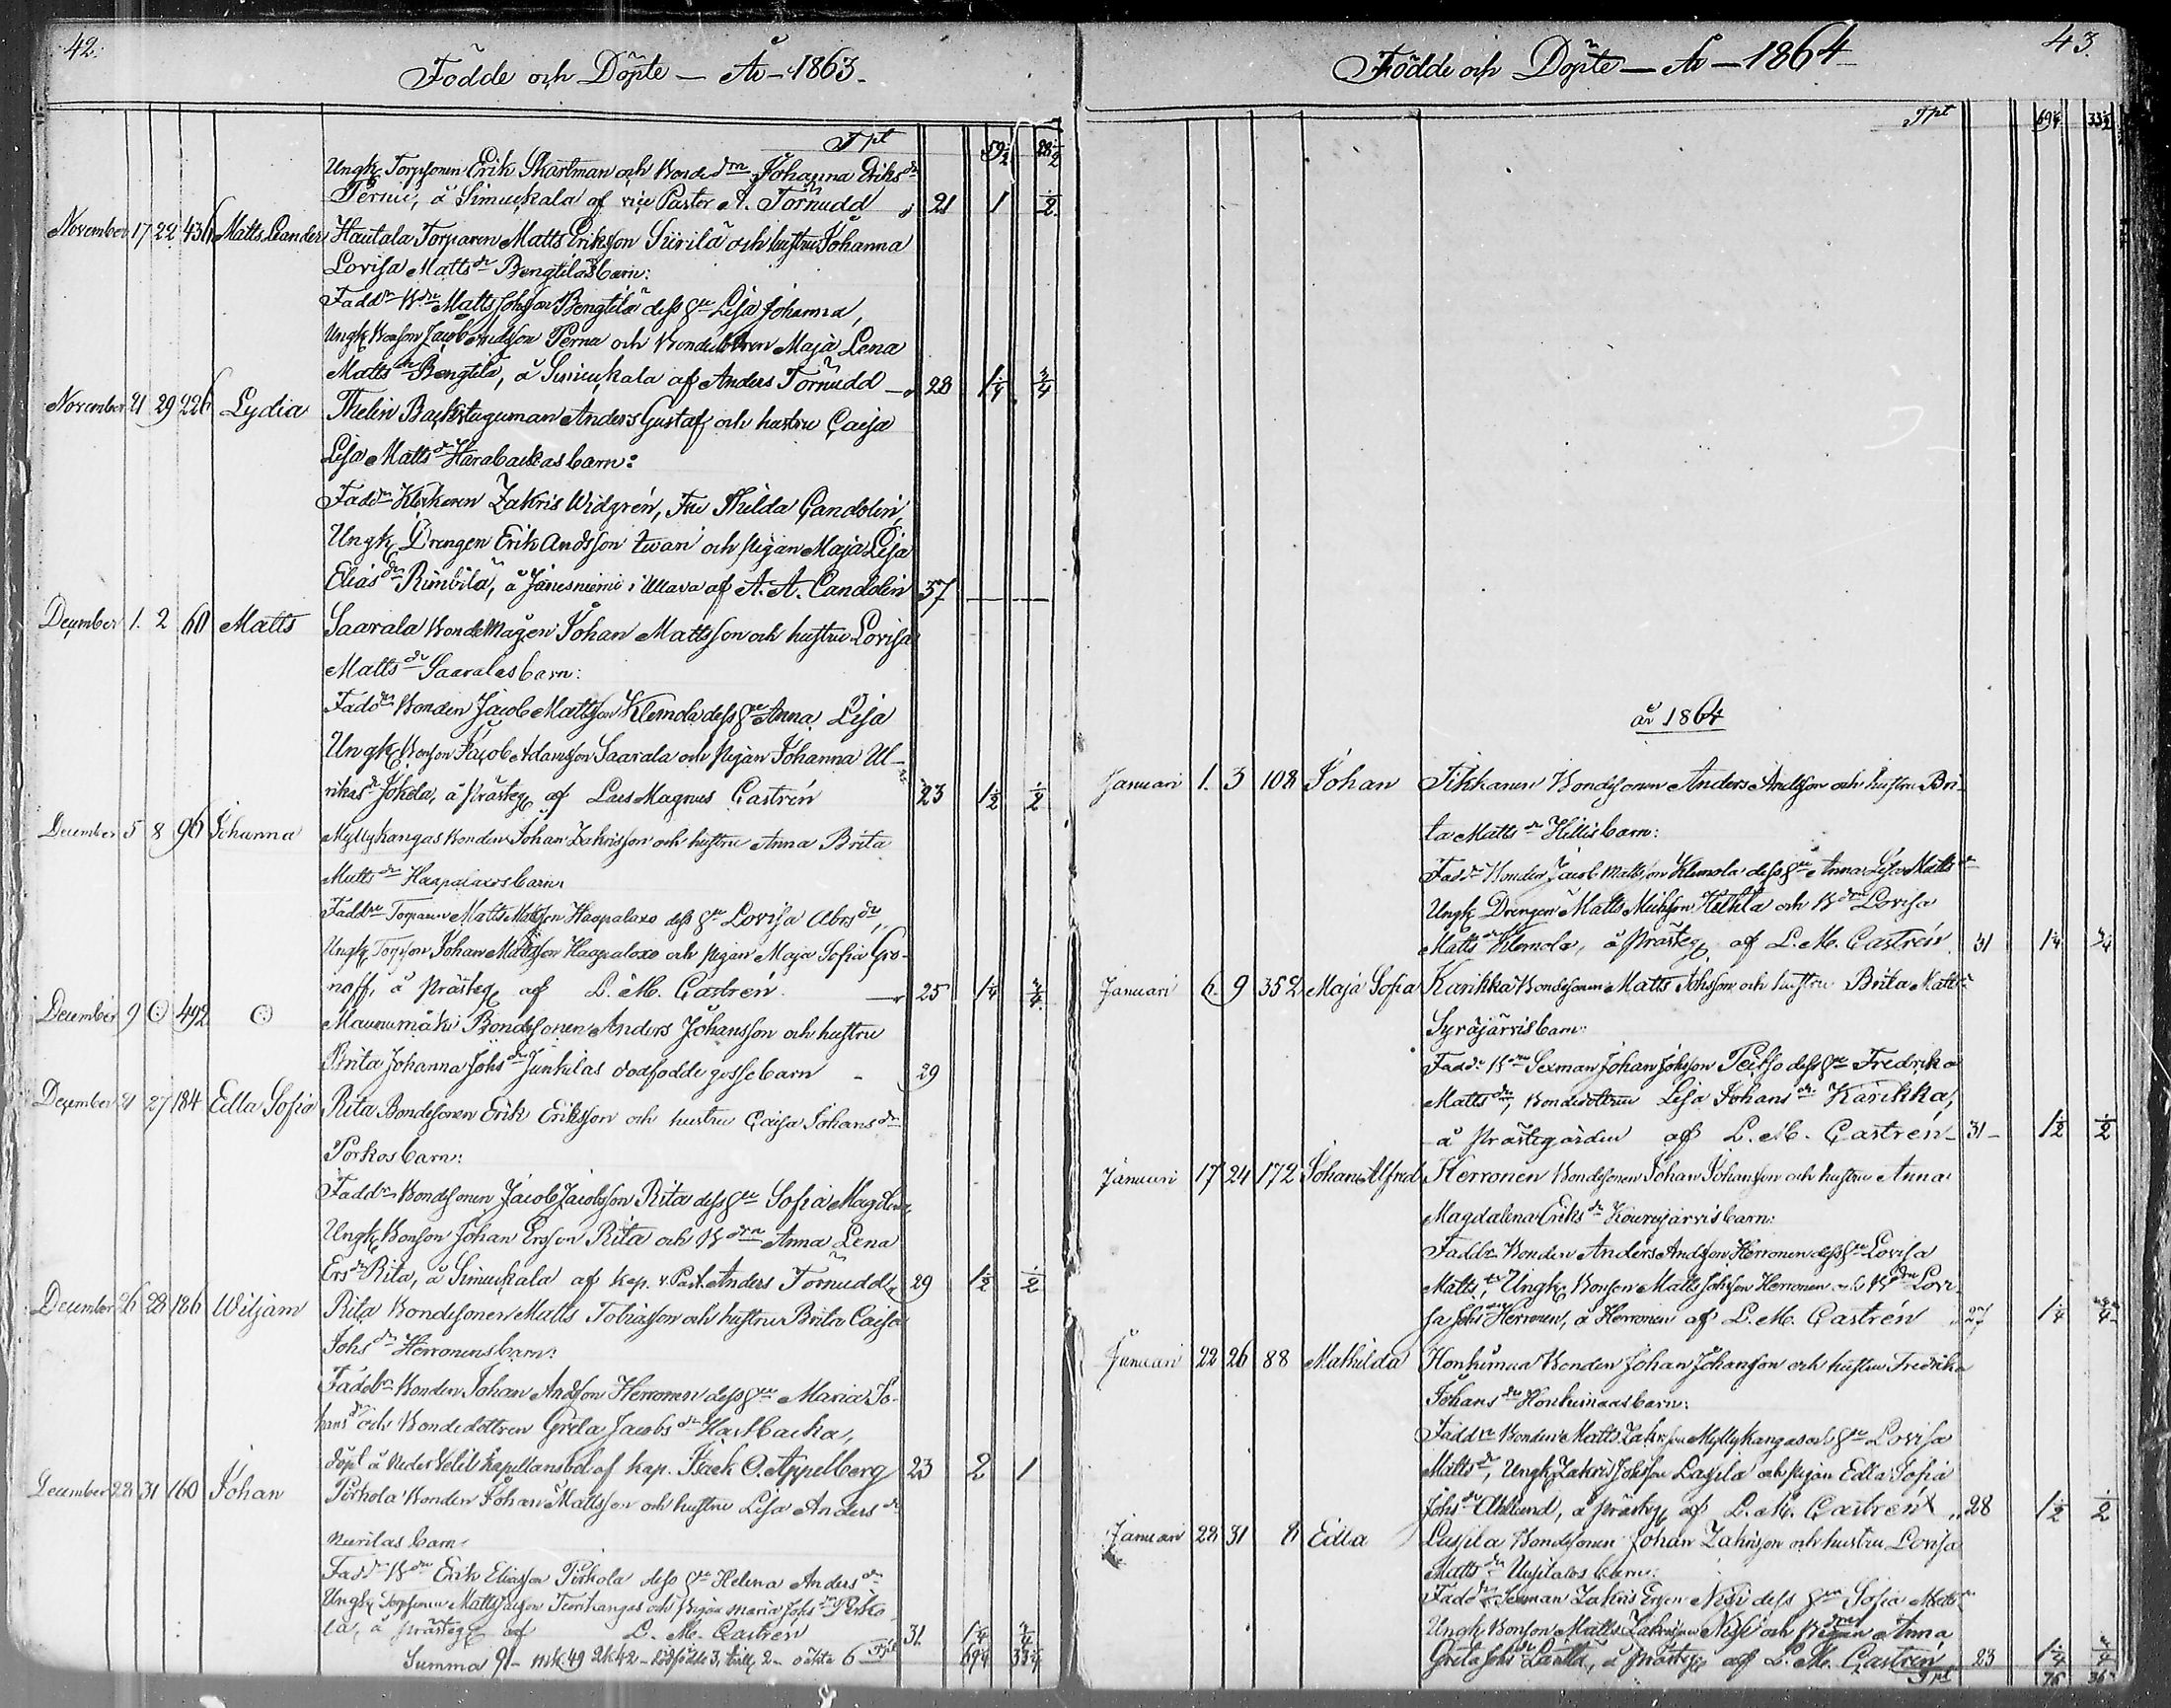 42.
Födde och Döpte — År — 1863.
Tpt 59½ 28½
Ungk Torpsonen Erik Skartman och Bonde drn Johanna Eriks dr
Pernu, å Simuckala af vice Pastor A. Törnudd 21 1 ½
November 17 22 436 Matts Leander Hautala Torparen Matts Eriksson Siirilä och hustru Johanna
Lovisa Matts dr Bengtilas barn:
Fadd r Matts Johsson Bengtilä dess hu Lisa Johanna,
Ungk Bonson Jacob Andsson Perna och Bondedottren Maja Lena
Matts dr Bengtilä, å Simuckala af Anders Törnudd 28 1¼ ¾
November 21 29 226 Lydia Thelin Backstuguman Anders Gustaf och hustru Caisa
Lisa Matts dr Harabackas barn:
Fadd r Klockaren Zakris Widgrén, Fru Thilda Candolin,
Ungk Drengen Erik Andsson och pigan Maja Lisa
Elias dr Rimbilä, å Jänesniemi i Ullava af A. A. Candolin 37 — —
December 1. 2 60 Matts Saarala Bonde Mågen Johan Mattsson och hustru Lovisa
Matts dr Saaralas barn:
Fadd r Bonden Jacob Mattsson Klemola dess hu Anna Lisa
Ungk Bonson Jacob Adamsson Saarala och pigan Johanna Ul-
rikas dr Jokela, å prästeg af Lars Magnus Castrén 23 1½ ½
December 5 8 96 Johanna Myllykangas Bonden Johan Zakrisson och hustru Anna Brita
Matts dr Haapalaxos barn:
Fadd r Torparen Matts Mattsson Haapalaxo dess hu Lovisa Abrs dr,
Ungk Torpson Johan Mattsson Haapalaxo och pigan Maja Sofia Gro-
noff, å prästeg af L. M. Castrén 25 1¼ ¾
December 9 492 Maunumäki Bondesonen Anders Johansson och hustru
Brita Johanna Johs dr Junkilas dödfödde gossebarn 29
December 21 27 184 Edla Sofia Rita Bondesonen Erik Eriksson och hustru Caisa Johans dr
Porkos barn:
Fadd r Bondesonen Jacob Jacobsson Rita dess hu Sofia Magdlena
Ungk Bonson Johan Ersson Rita och B drn Anna Lena
Ers dr Rita, å Simuckala af kap. v. Past. Anders Törnudd 29 1½ ½
December 26 28 186 Wiljam Rita Bondesonen Matts Tobiasson och hustru Brita Caisa
Johs dr Herronens barn:
Fadd r Bonden Johan Andsson Herronen dess hu Maria Jo-
hans dr och Bondedottren Greta Jacobs dr Hastbacka,
döpt å Neder Vetil kapellansbol af kap. Isack O. Appelberg 23 2 1
December 28 31 160 Johan Pirkola Bonden Johan Mattsson och hustru Lisa Anders dr
Nurilas barn
Fadd r Erik Eliasson Pirkola dess hu Helena Anders dr
Ungk Torpsonen Matts och Pigan Maria Johs dr Pirko
la, å prästeg af L. M. Castrén 31 1¼ ¾
Summa 91 — mk. 49 qk 42 — dödfödde 3, tvill 2 — oäkta 6 Tpt 69¼ 33½
Födde och Döpte — År — 1864 43.
Tpt 69¼ 33½
år 1864
Januari 1. 3 108 Johan Tikkanen Bondesonen Anders Andsson och hustru Bri-
ta Matts dr Hillis barn:
Fadd r Bonden Jacob Mattsson Klemola dess hu Anna Lisa Matts dr
Ungk Drengen Matts Michsson Huhta och B drn Lovisa
Matts dr Klemola, å prästeg af L. M. Castrén 31 1¼ ¾
Januari 6. 9 352 Maja Sofia Karikka Bondesonen Matts Johsson och hustru Brita Matts dr
Syräjärvis barn:
Fadd r Sexman Johan Johsson Peitso dess hu Fredrika
Matts dr, Bondedottren Lisa Johans dr Karikka,
å prästegården af L. M. Castrén 31 1½ ½
Januari 17 24 172 Johan Alfred Herronen Bondesonen Johan Johansson och hustru Anna
Magdalena Eriks dr Kourajärvis barn:
Fadd r Bonden Anders Andsson Herronen dess hu Lovisa
Matts dr, Ungk Bonson Matts Johsson Herronen och B drn Lovi-
sa Johs dr Herronen, å Herronen af L. M. Castrén 27 1¼ ¾
Januari 22 26 88 Mathilda Honkimaa Bonden Johan Johansson och hustru Fredrika
Johans dr Honkimaas barn:
Fadd r Bonden Matts Zakrsson Myllykangas och hu Lovisa
Matts dr, Ungk Zakris Johsson Lassila och pigan Edla Sofia
Johs dr Ahlund, å prästeg af L. M. Castrén 28 1½ ½
Januari 28 31 8 Edla Lassila Bondesonen Johan Zakrisson och hustru Lovisa
Matts dr Uusitalos barn:
Fadd r Sexman Zakris Ersson Nisi dess hu Sofia Matts dr
Ungk Bonson Matts Zakrisson Nisi och Pigan Anna
Greta Johs dr å prästeg af L. M. Castrén 23 1¼ ¾
Tpt 76 36